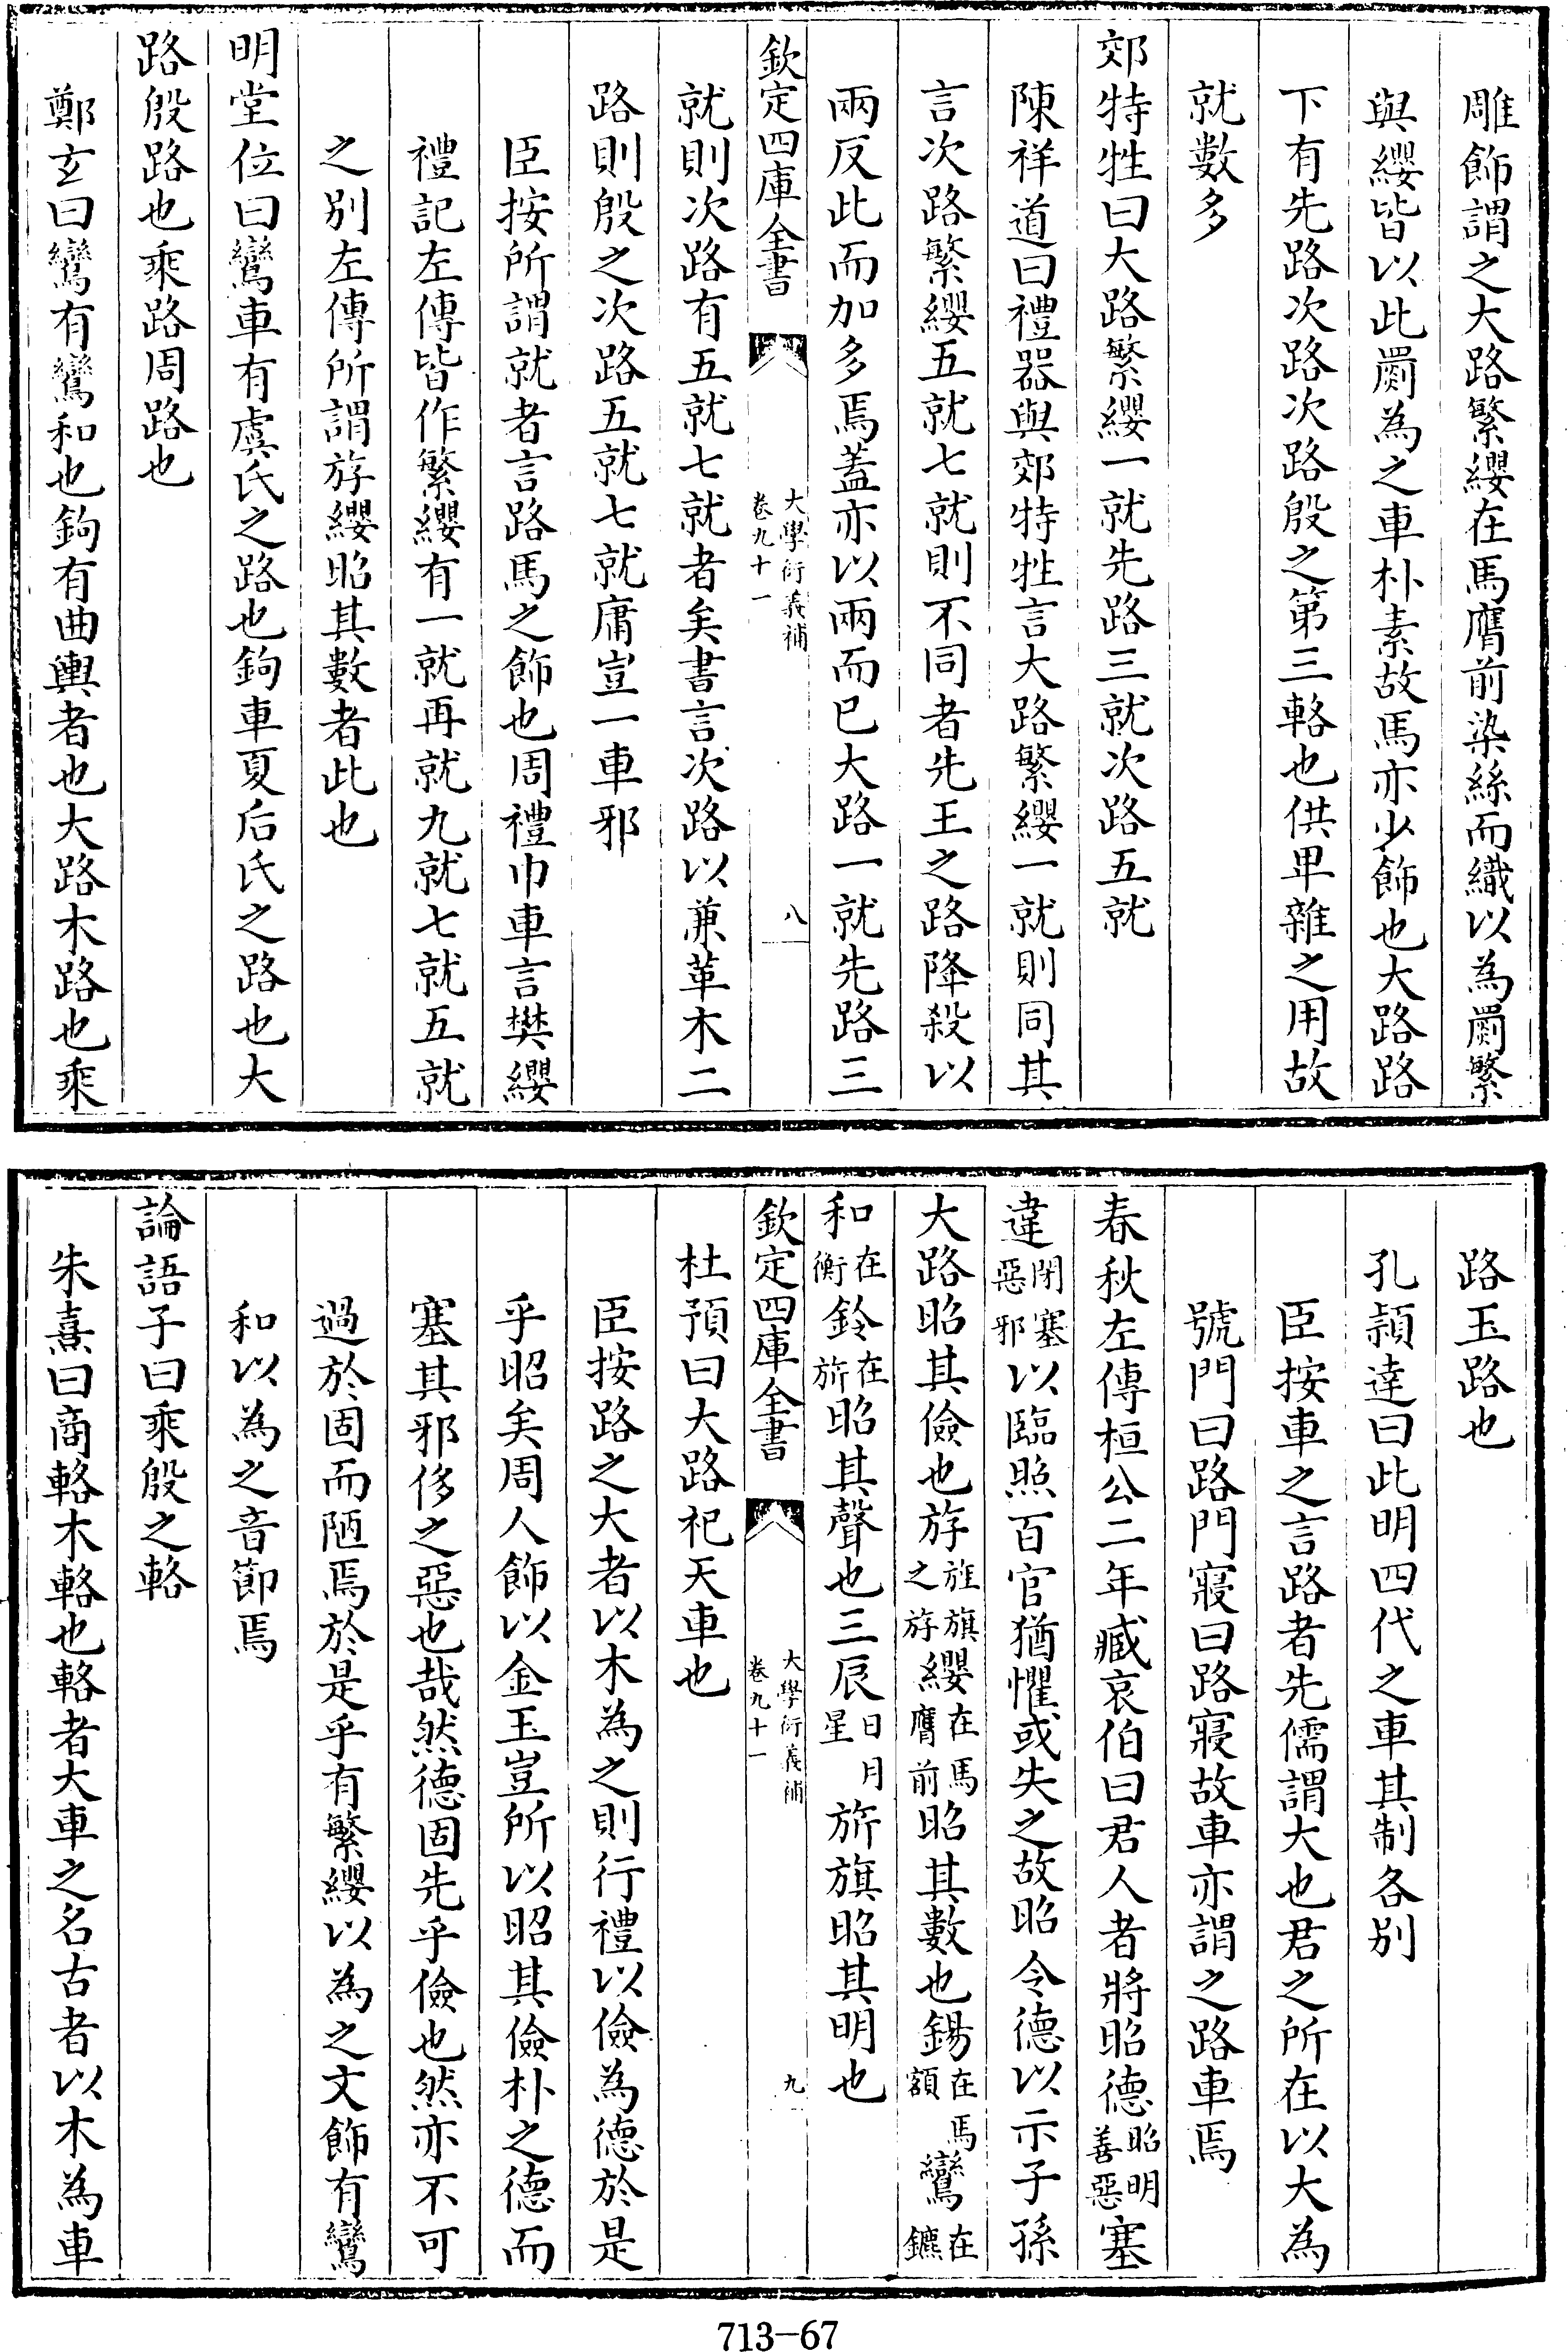 雕飾謂之大路繁纓在馬膺前染絲而織以為罽繁
與纓皆以此罽為之車朴素故馬亦少飾也大路路
下有先路次路次路殷之第三輅也供卑雜之用故
就數多
郊特牲曰大路繁纓一就先路三就次路五就
陳祥道曰禮器與郊特牲言大路繁纓一就則同其
言次路繁纓五就七就則不同者先王之路降殺以
兩反此而加多焉蓋亦以兩而已大路一就先路三
欽定四庫全書
大學衍義補
卷九十一
八
就則次路有五就七就者矣書言次路以兼革木二
路則殷之次路五就七就庸豈一車邪
臣按所謂就者言路馬之飾也周禮巾車言樊纓
禮記左傳皆作繁纓有一就再就九就七就五就
之別左傳所謂斿纓昭其數者此也
明堂位曰鸞車有虞氏之路也鉤車夏后氏之路也大
路殷路也乘路周路也
鄭玄曰鸞有鸞和也鉤有曲輿者也大路木路也乘
路玉路也
孔頴達曰此明四代之車其制各別
臣按車之言路者先儒謂大也君之所在以大為
號門曰路門寢曰路寢故車亦謂之路車焉
春秋左傳桓公二年臧哀伯曰君人者將昭德昭明善惡塞
違閉塞惡邪以臨照百官猶懼或失之故昭令德以示子孫
大路昭其儉也斿旌旗之斿纓在馬膺前昭其數也鍚在馬額鸞在鑣
和在衡鈴在旂昭其聲也三辰日月星旂旗昭其明也
欽定四庫全書
大學衍義補
卷九十一
九
杜預曰大路祀天車也
臣按路之大者以木為之則行禮以儉為德於是
乎昭矣周人飾以金玉豈所以昭其儉朴之德而
塞其邪侈之惡也哉然德固先乎儉也然亦不可
過於固而陋焉於是乎有繁纓以為之文飾有鸞
和以為之音節焉
論語子曰乘殷之輅
朱熹曰商輅木輅也輅者大車之名古者以木為車
713-67